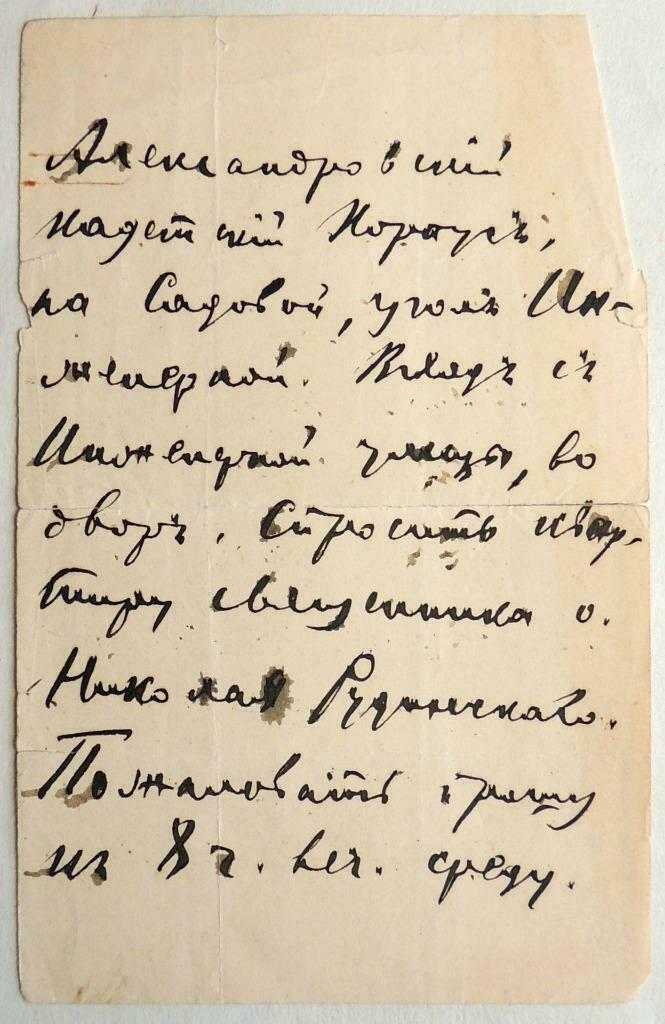 Александровскій
кадетскій Корпусъ,
на Садовой, уголъ Ин-
женерной. Входъ съ
Инженерной улицы, во
дворъ. Спросить квар-
тиру священника о.
Николая Рудинскаго.
Пожаловать прошу
къ 8 ч. веч. среду.